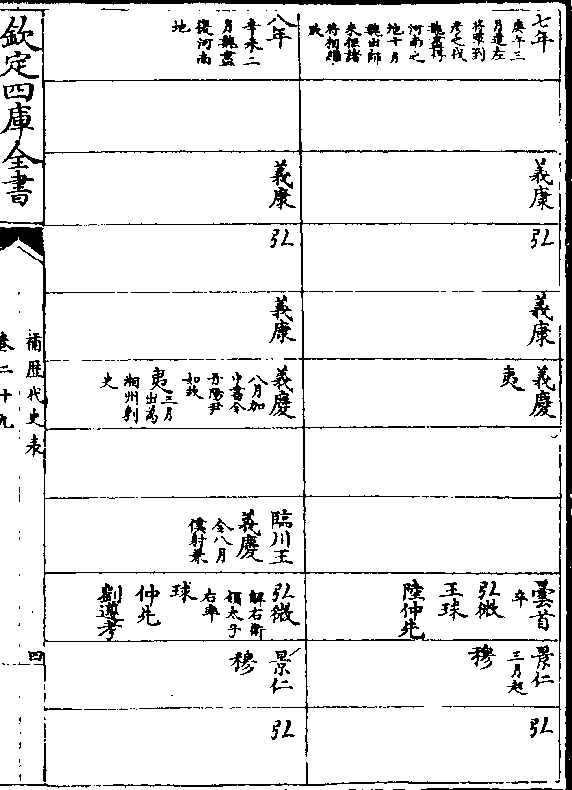 七年
庚午三
月遣左
將軍到
彥之伐
魏盡得
河南之
地十月
魏出師
來征諸
將相繼
敗
義康
弘
義康
義慶
夷
曇首
卒
弘微
王球
陸仲元
景仁
三月起
穆
弘
八年
辛未二
月魏盡
復河南
地
義康
弘
義康
義慶
八月加
中書令
丹陽尹
如故
夷
三月
出為
湘州刺
史
臨川王
義慶
八月
僕射兼
弘微
解右衛
領太子
右率
球
仲元
劉遵考
景仁
穆
弘
欽定四庫全書
補歷代史表
卷二十九
四